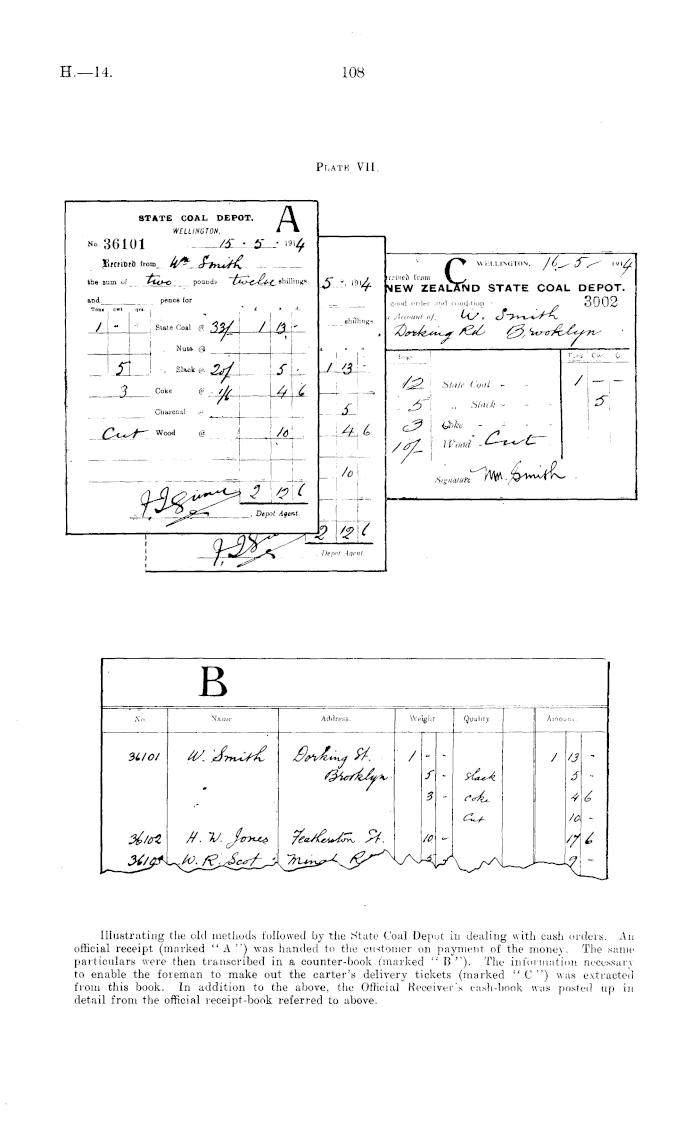 H.—14.
108
PLATE VII.
A
STATE COAL DEPOT.
WELLINGTON,
No 36101 15 . 5 . 1914
Received from Wm Smith
the sum of two pounds twelve shillings
and pence for
Tons cwt. qrs. £ s. d.
1 - - State Coal @ 33/ 1 13 -
Nuts @
5 „ Slack @ 20/ 5 -
3 Coke @ 1/6 4 6
Charcoal @
Cut Wood @ 10
2 12 6
Depot Agent.
5 . 1914
shillings
1 13 -
5
4 6
10
2 12 6
Depot Agent.
C
WELLINGTON, 16 – 5 – 1914
ceived from
NEW ZEALAND STATE COAL DEPOT.
good order and condition 3002
Account of, W. Smith
Dorking Rd Brooklyn
Bags. Tons Cwt. Q.
12 State Coal - - 1 — —
5 „ Slack - - 5
3 Coke - -
10/ Wood - Cut
Signature Wm. Smith
B
No. Name Address. Weight Quality Amount.
36101 W. Smith Dorking St. 1 - - 1 13 -
Brooklyn 5 - Slack 5 -
3 - Coke 4 6
Cut 10 -
36102 H. W. Jones Featherston St. 10 - 17 6
W. R. Scot 9 -
Illustrating the old methods followed by the State Coal Depot in dealing with cash orders. An
official receipt (marked “ A ”) was handed to the customer on payment of the money. The same
particulars were then transcribed in a counter-book (marked “ B ”). The information necessary
to enable the foreman to make out the carter's delivery tickets (marked “ C ”) was extracted
from this book. In addition to the above, the Official Receiver's cash-book was posted up in
detail from the official receipt-book referred to above.